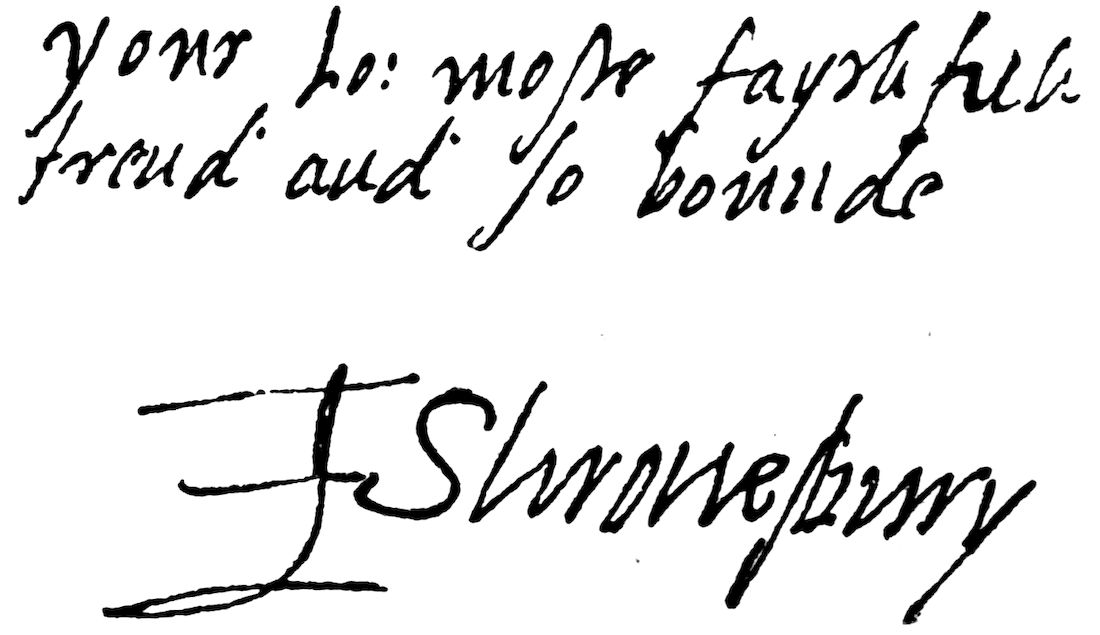 your lo: moste faythfull
frend and so bounde
E Shrouesbury